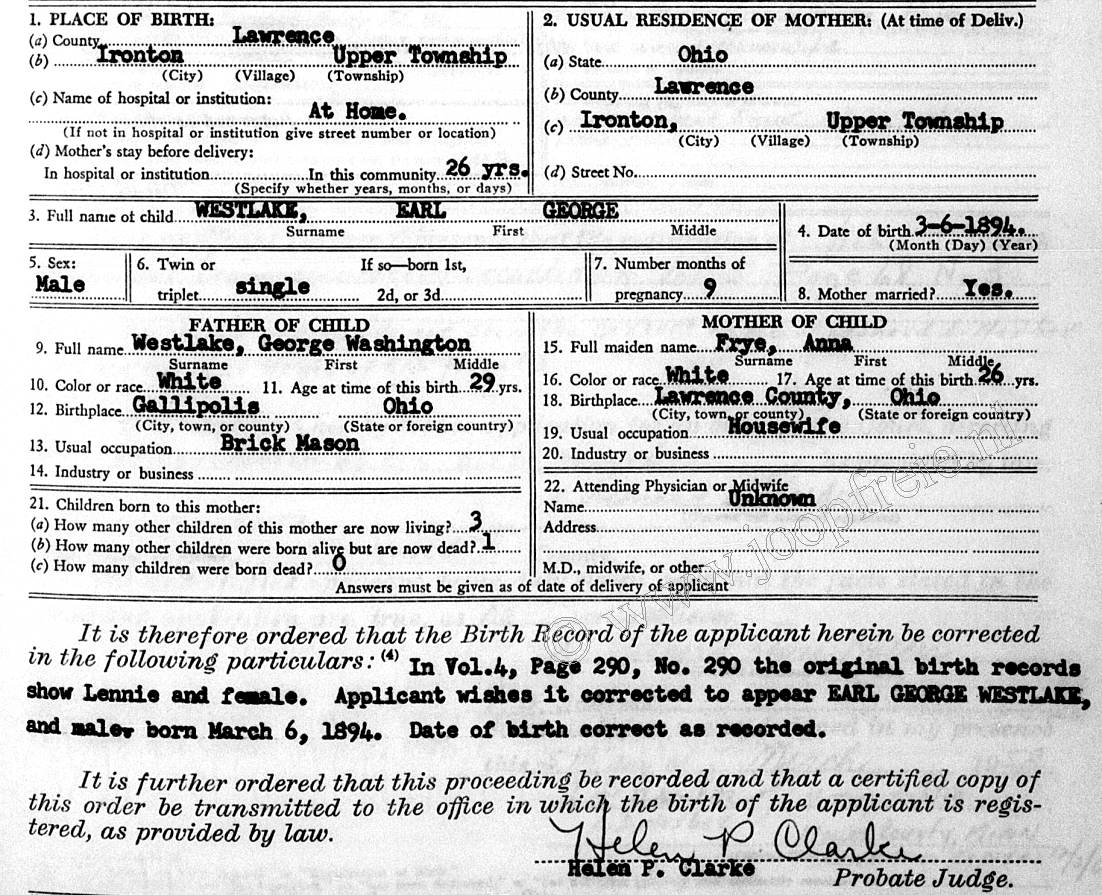 1. PLACE OF BIRTH:
(a) County Lawrence
(b) Ironton Upper Township
(City) (Village) (Township)
(c) Name of hospital or institution:
At Home.
(If not in hospital or institution give street number or location)
(d) Mother's stay before delivery:
In hospital or institution In this community 26 yrs.
(Specify whether years, months, or days)
2. USUAL RESIDENCE OF MOTHER: (At time of Deliv.)
(a) State Ohio
(b) County Lawrence
(c) Ironton, Upper Township
(City) (Village) (Township)
(d) Street No.
3. Full name of child WESTLAKE, EARL GEORGE
Surname First Middle
4. Date of birth 3-6-1894.
(Month (Day) (Year)
5. Sex:
Male
6. Twin or If so—born 1st,
triplet single 2d, or 3d
7. Number months of
pregnancy 9
8. Mother married? Yes.
FATHER OF CHILD
9. Full name Westlake, George Washington
Surname First Middle
10. Color or race White 11. Age at time of this birth 29 yrs.
12. Birthplace Gallipolis Ohio
(City, town, or county) (State or foreign country)
13. Usual occupation Brick Mason
14. Industry or business
MOTHER OF CHILD
15. Full maiden name Frye, Anna
Surname First Middle
16. Color or race White 17. Age at time of this birth 26 yrs.
18. Birthplace Lawrence County, Ohio
(City, town, or county) (State or foreign country)
19. Usual occupation Housewife
20. Industry or business
21. Children born to this mother:
(a) How many other children of this mother are now living? 3
(b) How many other children were born alive but are now dead? 1
(c) How many children were born dead? 0
22. Attending Physician or Midwife
Name Unknown
Address
M.D., midwife, or other
Answers must be given as of date of delivery of applicant
It is therefore ordered that the Birth Record of the applicant herein be corrected
in the following particulars: (4) In Vol.4, Page 290, No. 290 the original birth records
show Lennie and female. Applicant wishes it corrected to appear EARL GEORGE WESTLAKE,
and male, born March 6, 1894. Date of birth correct as recorded.
It is further ordered that this proceeding be recorded and that a certified copy of
this order be transmitted to the office in which the birth of the applicant is regis-
tered, as provided by law.
Helen P. Clarke
Helen P. Clarke
Probate Judge.
© www.joopfreie.nl